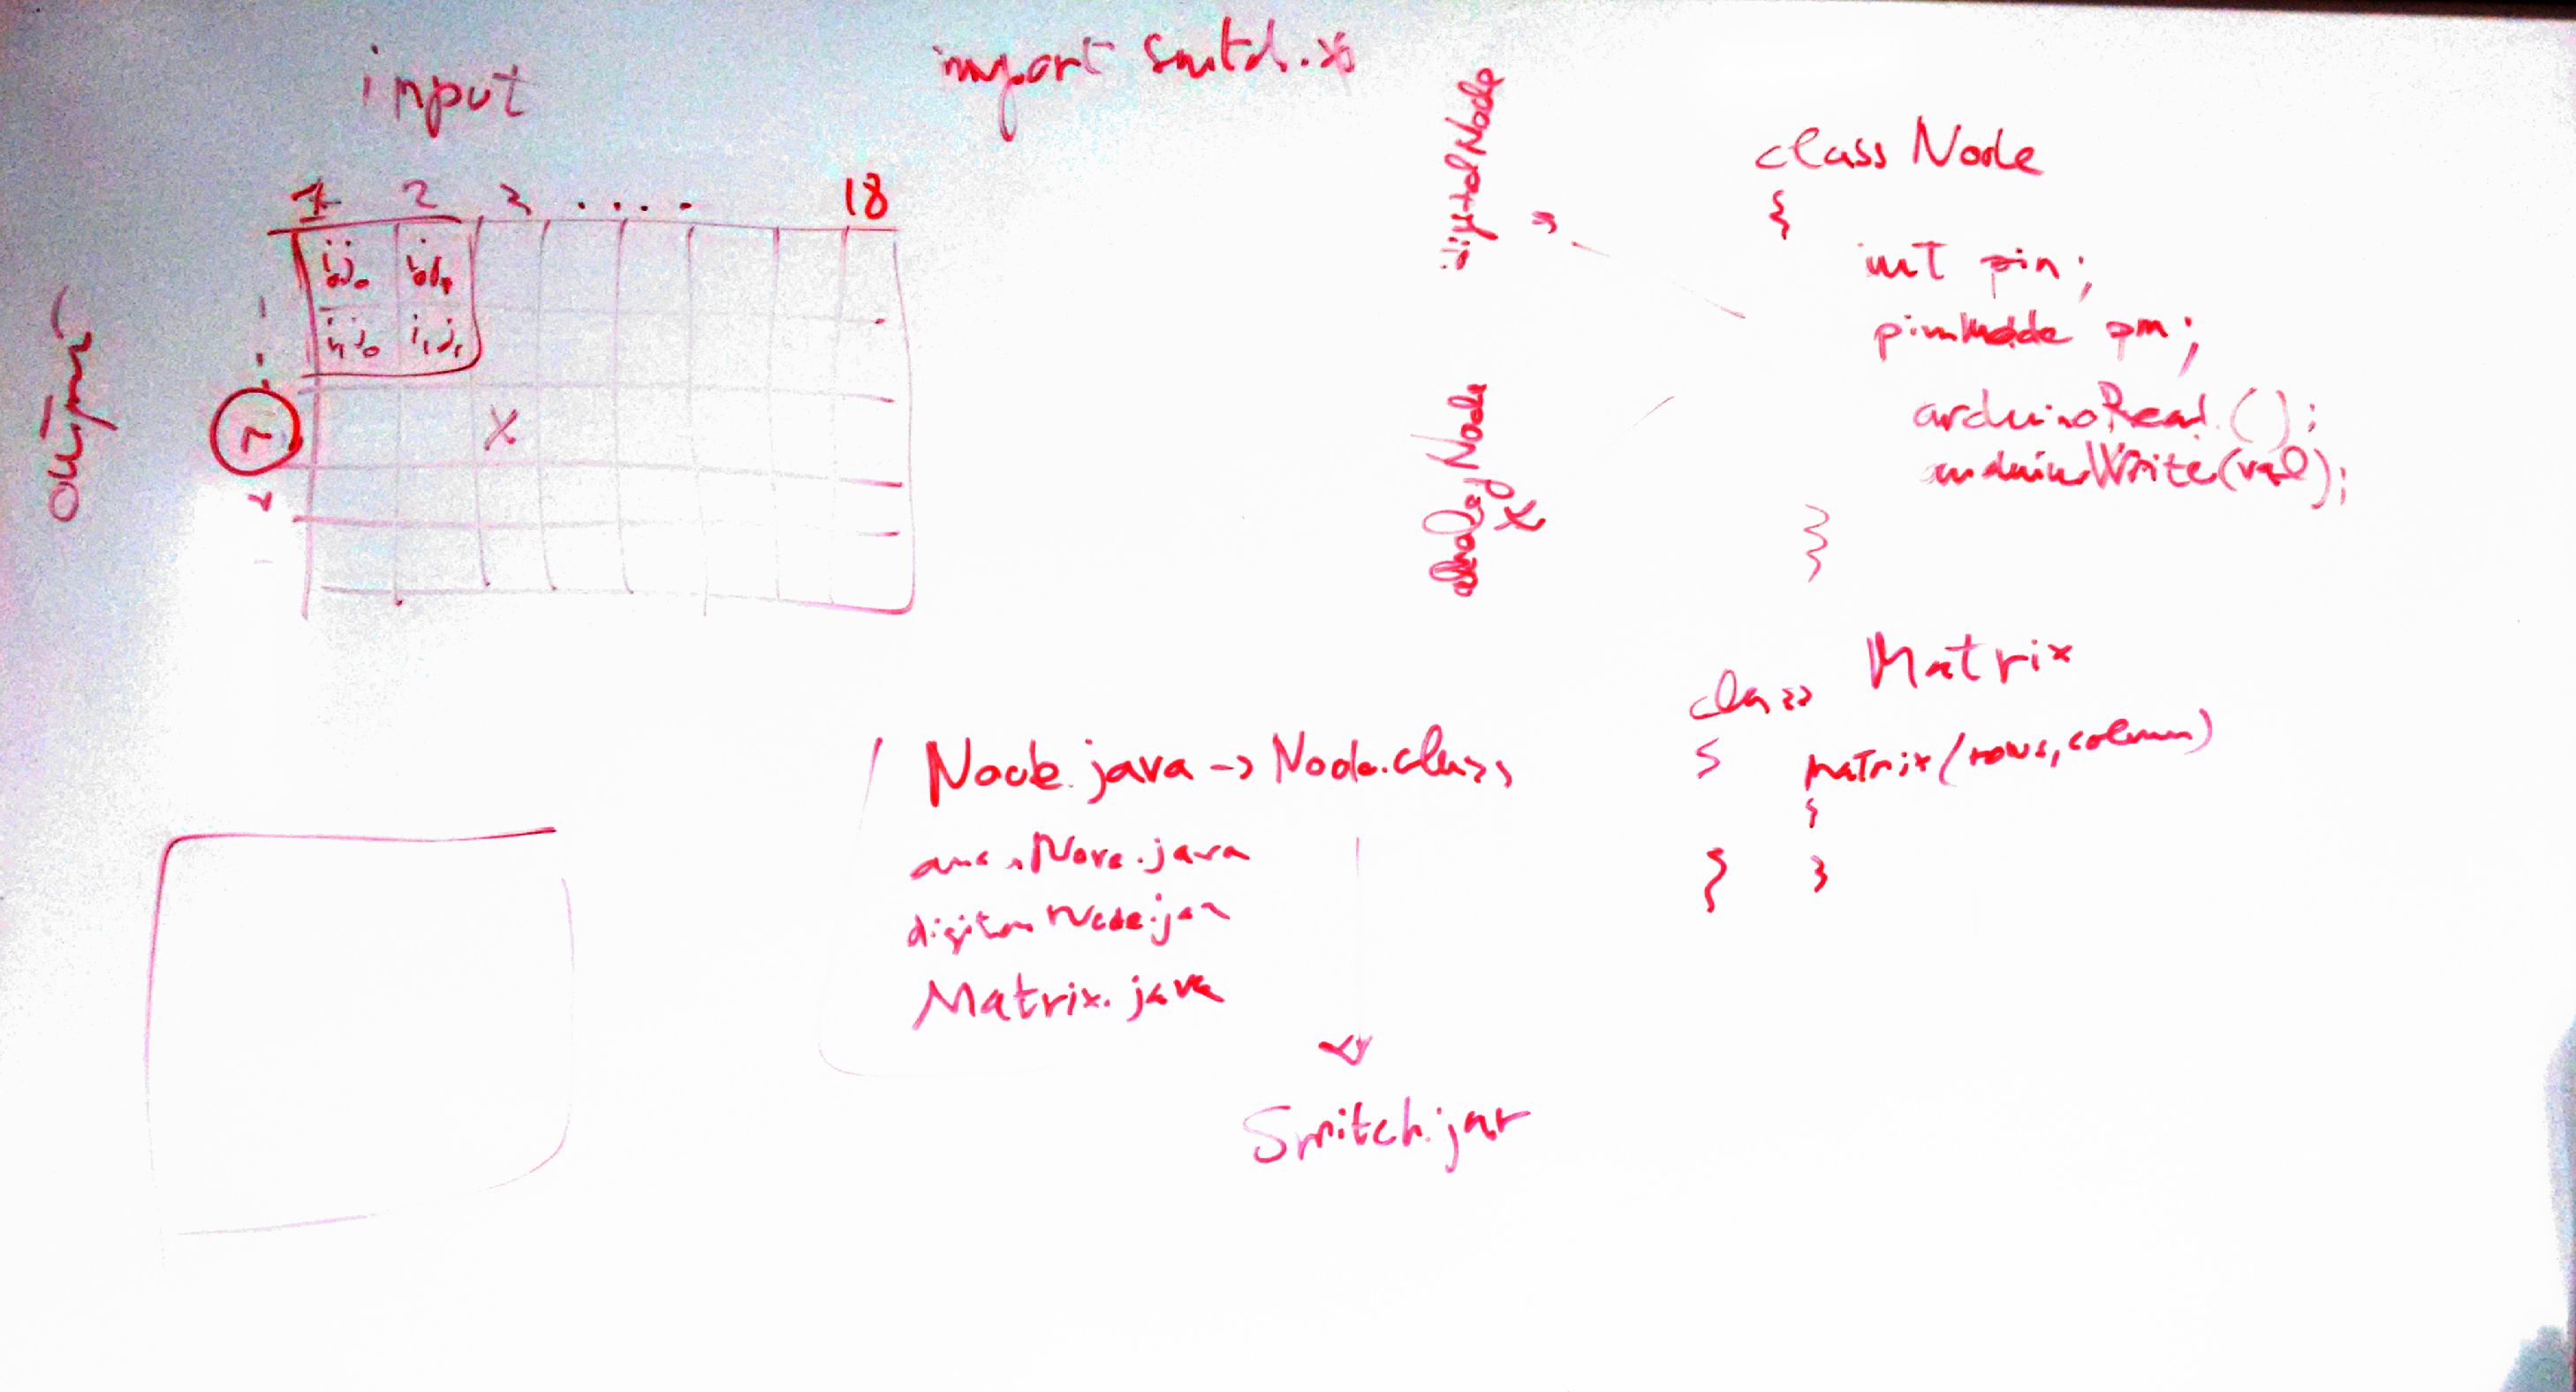 input
import switch.*
1 2 3 . . . . 18
i₀j₀ i₀j₁
i₁j₀ i₁j₁
X
output
digitalNode
analogNode
X
class Node
{
int pin;
pinMode pm;
arduinoRead();
arduinoWrite(val);
}
class Matrix
{
matrix(rows,column)
{
}
}
Node.java -> Node.class
Node.java
digital Node.jav
Matrix.java
Switch.jar